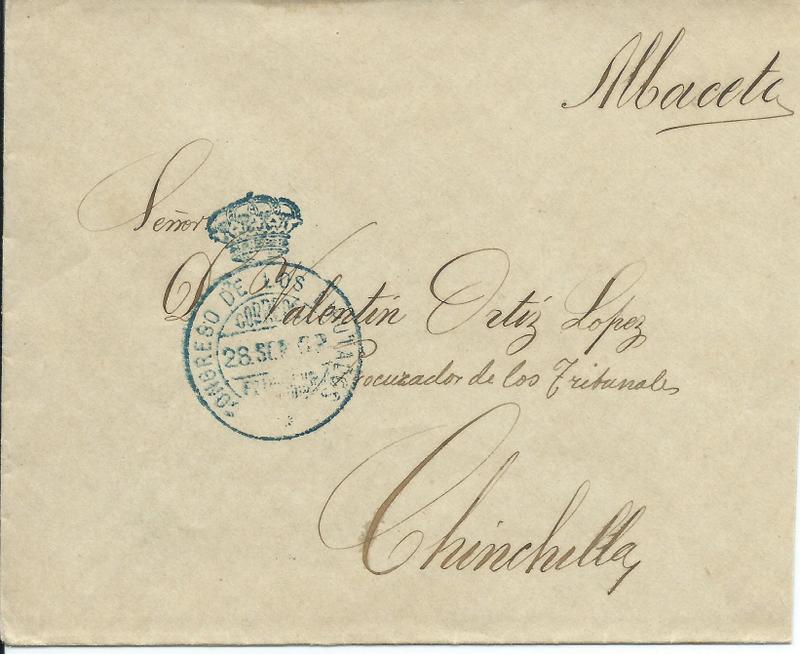 Albacete
Señor
D. Valentin Ortiz Lopez
Procurador de los Tribunales
Chinchilla
CONGRESO DE LOS DIPUTADOS
CORREOS
28.SEP